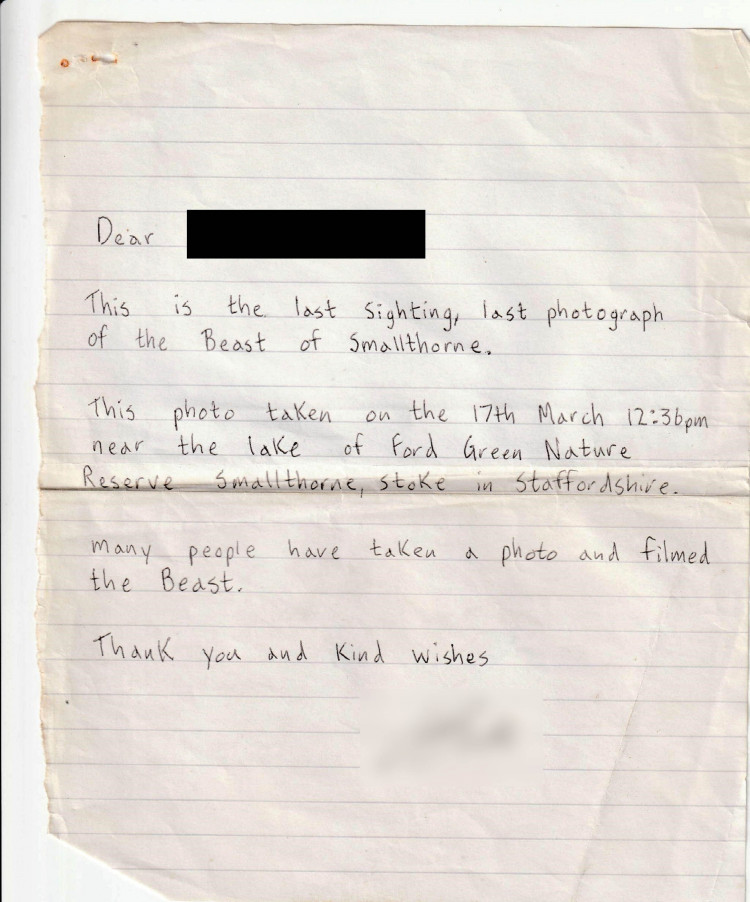 Dear
This is the last sighting, last photograph
of the Beast of Smallthorne.
This photo taken on the 17th March 12:36pm
near the lake of Ford Green Nature
Reserve Smallthorne, stoke in Staffordshire.
many people have taken a photo and filmed
the Beast.
Thank you and kind wishes